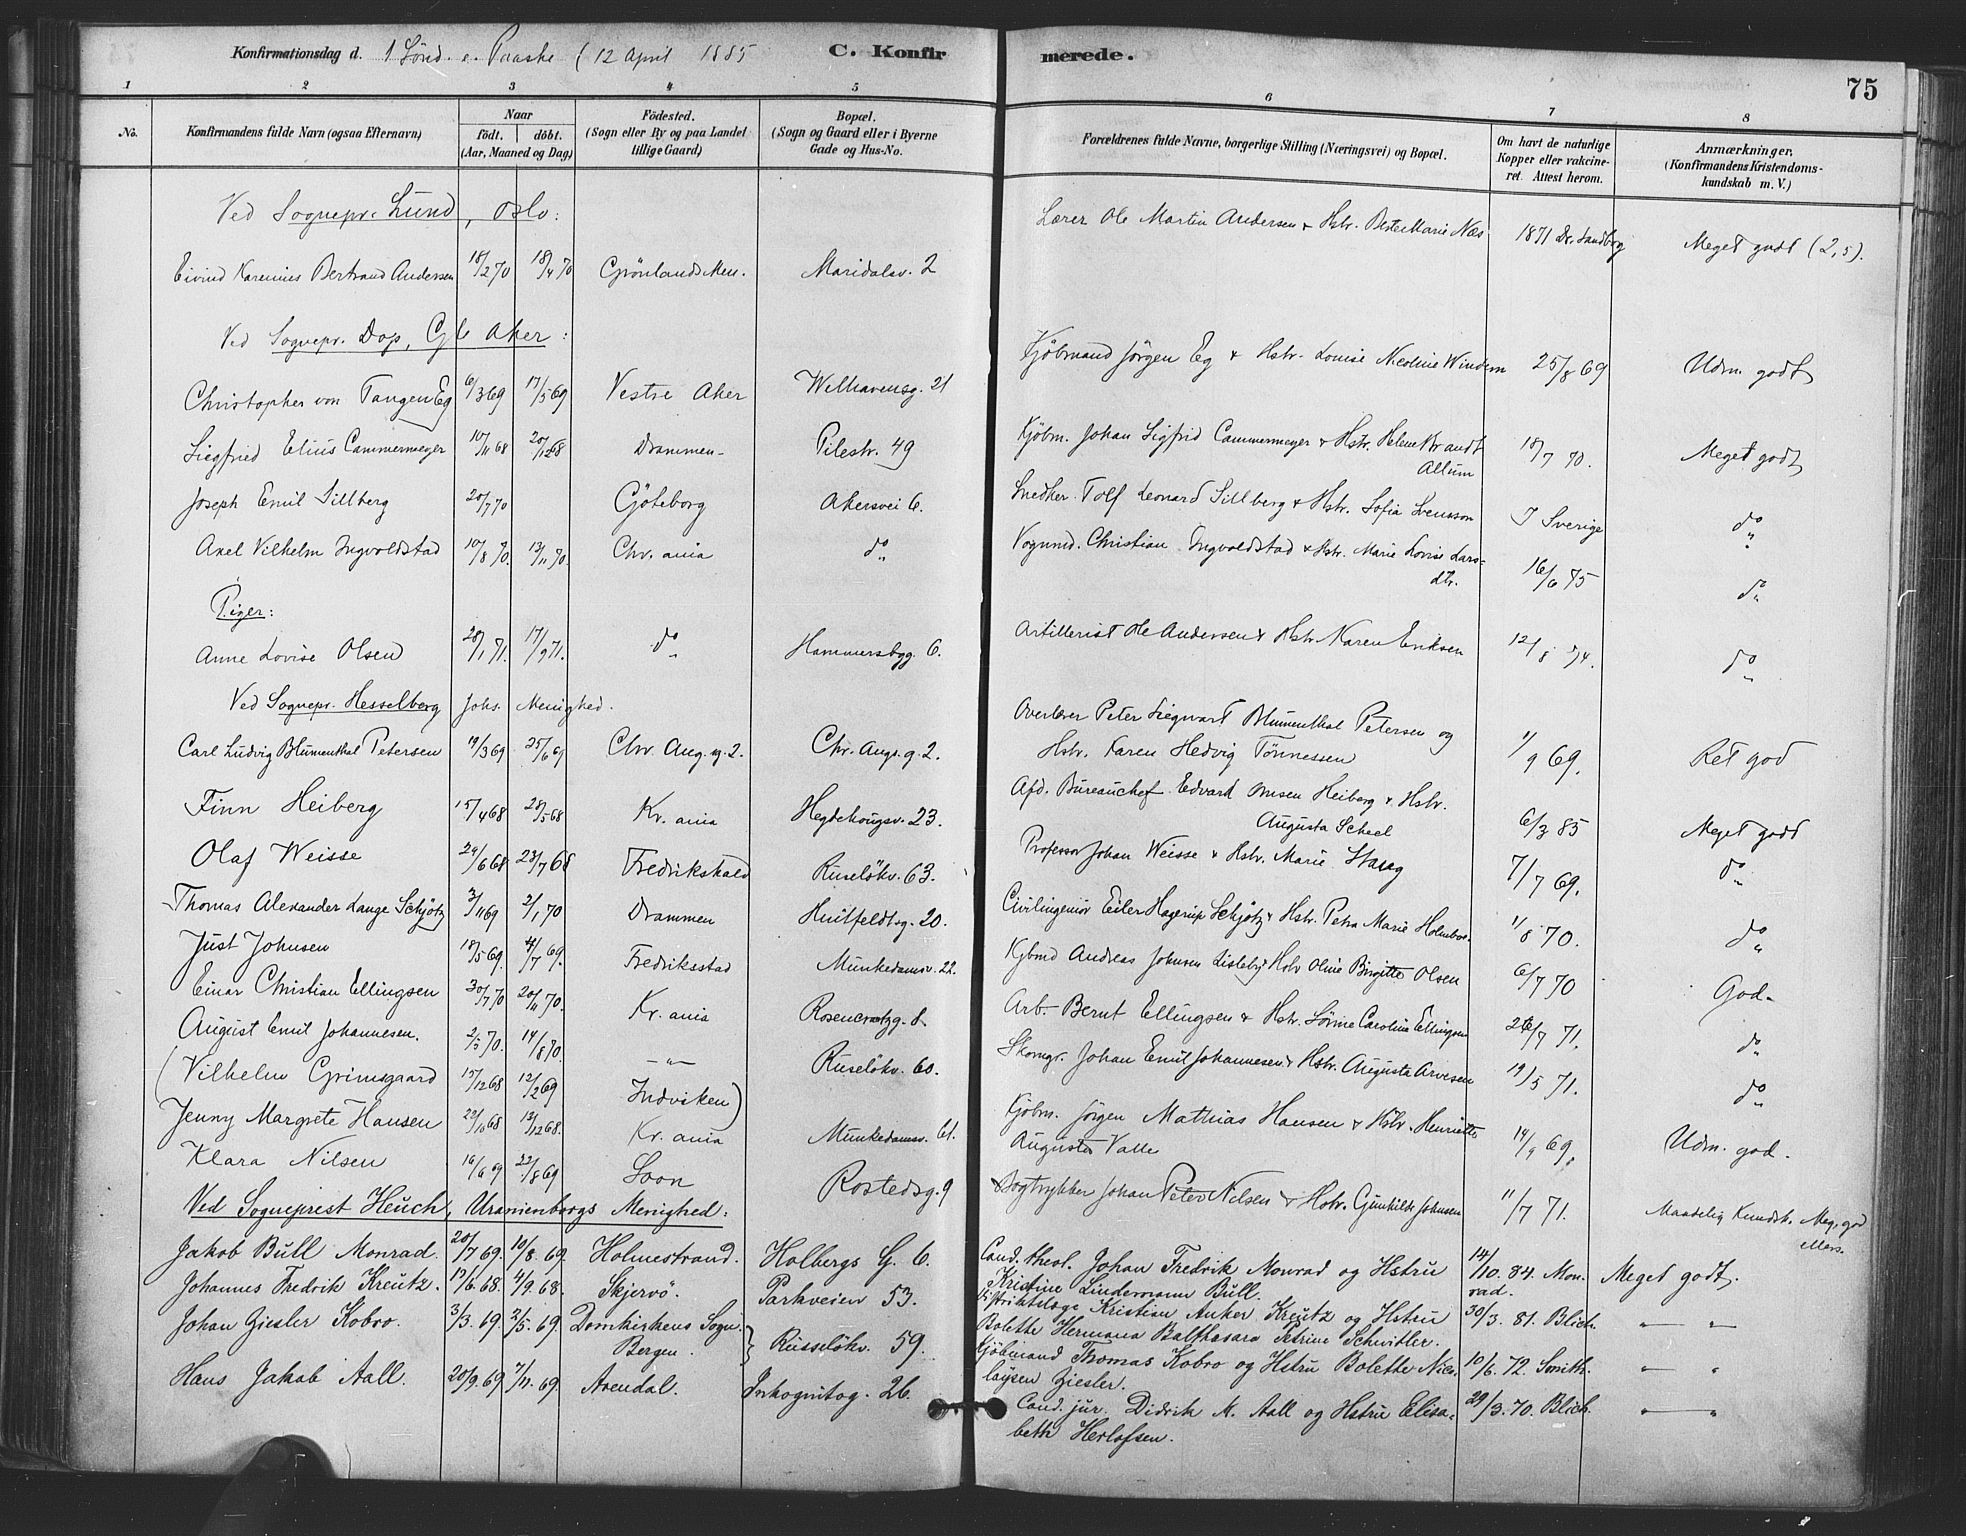 Konfirmationsdag d. 1 Sönd. e. Paaske (12 April 1885 C. Konfirmerede. 75
1 2 3 4 5 6 7 8
No. Konfirmandens fulde Navn (ogsaa Efternavn) Naar födt. döbt. (Aar, Maaned og Dag) Födested. (Sogn eller By og paa Landet tillige Gaard) Bopæl. (Sogn og Gaard eller i Byerne Gade og Hus-No. Forældrenes fulde Navne, borgerlige Stilling (Næringsvei) og Bopæl. Om havt de naturlige Kopper eller vakcineret. Attest herom. Anmærkninger. (Konfirmandens Kristendomskundskab m. V.)
Ved Sognepr. Lund, Oslo:
Eivind Karenius Bertrand Andersen 18/2 70 18/4 70 Grönlands Men. Maridalsv. 2 Lærer Ole Martin Andersen & Hstr. Marie Næs 1871 Dr. Sandberg Meget godt (2,5).
Ved Sognepr. Dop, Gl. Aker:
Christopher von Tangen Eg 6/3 69 17/5 69 Vestre Aker Welhavensg. 21 Kjöbmand Jörgen Eg & Hstr. Louise Nicoline Windern 25/8 69 Udm. godt
Siegfried Elius Cammermeyer 10/11 68 20/12 68 Drammen Pilestr. 49 Kjöbm. Johan Sigfrid Cammermeyer & Hstr. Helene Brandt Allum 18/7 70. Meget godt
Joseph Emil Sillberg 20/7 70 Göteborg Akersvei 6. Snedker Tolf Leonard Sillberg & Hstr. Sofia Svensson I Sverige do
Axel Vilhelm Ingvoldstad 10/8 70. 13/11 70. Chr.ania do Vognmd. Christian Ingvoldstad & Hstr. Marie Lovise Larsdtr. 16/6 75 do
Piger:
Anne Lovise Olsen 28/1 71. 17/9 71. do Hammersbgg. 6. Artillerist Ole Andersen & Hstr. Karen Eriksen 12/8 74. do
Ved Sognepr. Hesselberg Johs. Menighed.
Carl Ludvig Blumenthal Petersen 19/3 69 25/6 69 Chr. Aug. g. 2. Chr. Augs. g. 2. Overlærer Peter Siegwart Blumenthal Petersen og Hstr. Karen Hedvig Tönnessen 1/9 69. Ret god
Finn Heiberg 15/4 68 28/5 68 Kr.ania Hegdehougsv. 23. Afd. Bureauchef Edvard Omsen Heiberg & Hstr. Augusta Scheel 6/3 85 Meget godt
Olaf Weisse 24/6 68 23/7 68 Fredrikshald Ruselökv. 63. Professor Johan Weisse & Hstr. Marie Stang 7/7 69. do
Thomas Alexander Lange Schjötz 3/11 69 2/1 70 Drammen Huitfeldtsg. 20. Civilingeniör Eiler Hagerup Schjötz & Hstr. Petra Marie Holmboe 1/8 70. do
Just Johnsen 18/5 69. 4/7 69. Fredriksstad Munkedamsv. 22. Kjbmd Andreas Johnsen Lisleby & Hstr Oline Birgitte Olsen 6/7 70 God
Einar Christian Ellingsen 30/7 70 20/11 70. Kr.ania Rosencratzg. 8. Arb. Bernt Ellingsen & Hstr. Sörine Caroline Ellingsen 26/7 71. do
August Emil Johannesen. 2/5 70. 14/8 70. — " — Ruselökv. 60. Skomgr. Johan Emil Johannesen & Hstr. Augusta Arvesen 19/5 71. do
(Vilhelm Grimsgaard 15/12 68 12/2 69 Indviken)
Jenny Margrete Hansen 22/10 68 13/12 68. Kr.ania Munkedamsv. 61. Kjöbm. Jörgen Mathias Hansen & Hstr. Henriette Augusta Valle 14/9 69. Udm. god.
Klara Nilsen 16/6 69 22/8 69 Soon Rostedsg. 9 Bogtrykker Johan Peter Nilsen & Hstr. Gunhilde Johnsen 11/7 71. Maadelig Kundsk. Meg. god
Ved Sogneprest Heuch, Uranienborgs Menighed:
Jakob Bull Monrad. 20/7 69. 10/8. 69. Holmestrand. Holbergs G. 6. Cand. theol. Johan Fredrik Monrad og Hstru Kristine Lindemann Bull. 14/10. 84. Monrad. Meget godt.
Johannes Fredrik Kreutz. 15/6. 68. 4/9. 68. Skjervö. Parkveien 53. Distriktslæge Kristian Anker Kreutz og Hstru Bolette Hermana Balthasara Petrine Schvittler. 30/3. 81. Blich. — " — "
Johan Ziesler Kobro. 3/3. 69. 2/5. 69. Domkirkens Sogn. Bergen. Russelökv. 59. Kjöbmand Thomas Kobro og Hstru Bolette Nicolaysen Ziesler. 10/6. 72. Smith. — " — "
Hans Jakob Aall. 20/9. 69 7/11. 69. Arendal. Inkognitog. 26. Cand. jur. Didrik M. Aall og Hstru Elisabeth Herlofsen. 29/3. 70. Blich. — " — "